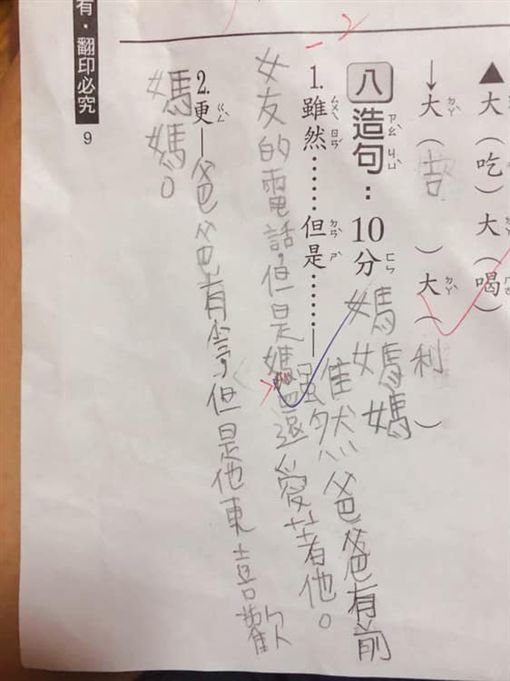 ▲大(吃)大(喝)
↓大(吉)大(利)
八 造句：10分
媽媽媽
-2
1.雖然……但是……—雖然爸爸有前
女友的電話,但是媽還愛著他。
2.更—爸爸有 ,但是他更喜歡
媽媽。
有‧翻印必究
9